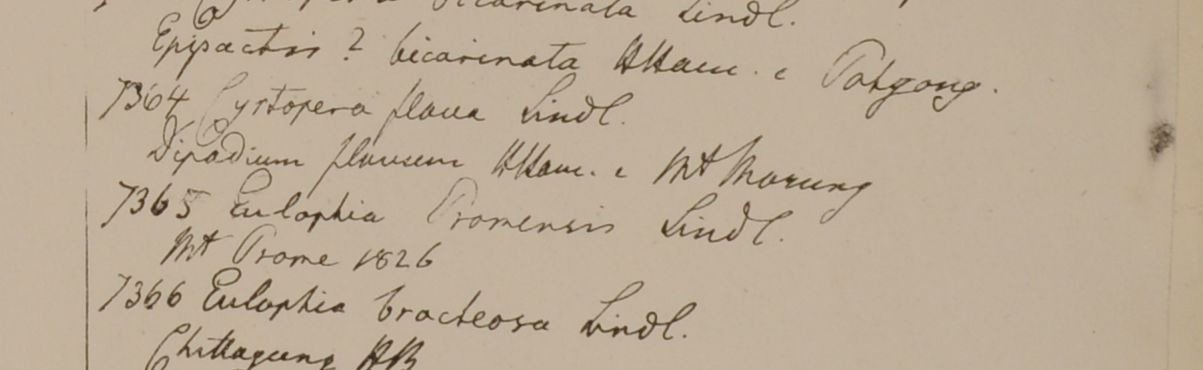 Cyrtopera bicarinata Lindl.
Epipactis ? bicarinata HHam. e Patgong.
7364 Cyrtopera flava Lindl.
Dipodium flavum HHam. e Mt Morung
7365 Eulophia Promensis Lindl.
Mt Prome 1826
7366 Eulophia bracteosa Lindl.
Chittagung HB